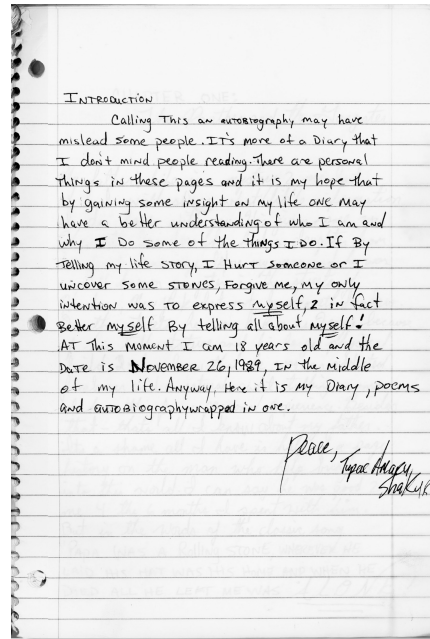 INTRODUCTION
Calling This an autobiography may have
mislead some people. IT'S more of a Diary that
I don't mind people reading. There are personal
Things in these pages and it is my hope that
by gaining some insight on my life one may
have a better understanding of who I am and
why I Do some of the things I Do. If By
Telling my life story, I Hurt someone or I
uncover some STONES, Forgive me, my only
intention was to express myself, 2 in fact
Better myself By telling all about myself!
AT This moment I am 18 years old and the
DATE is NOVEMBER 26, 1989, IN the middle
of my life. Anyway, Here it is my Diary, poems
and autobiographywrapped in one.
Peace,
Tupac Amaru
Shakur